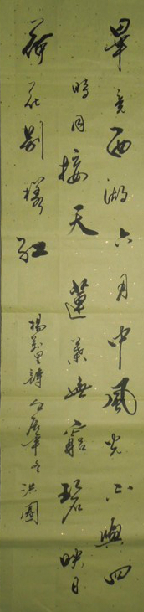 畢竟西湖六月中風光不與四
時同接天蓮葉無窮碧映日
荷花別樣紅
楊萬里詩